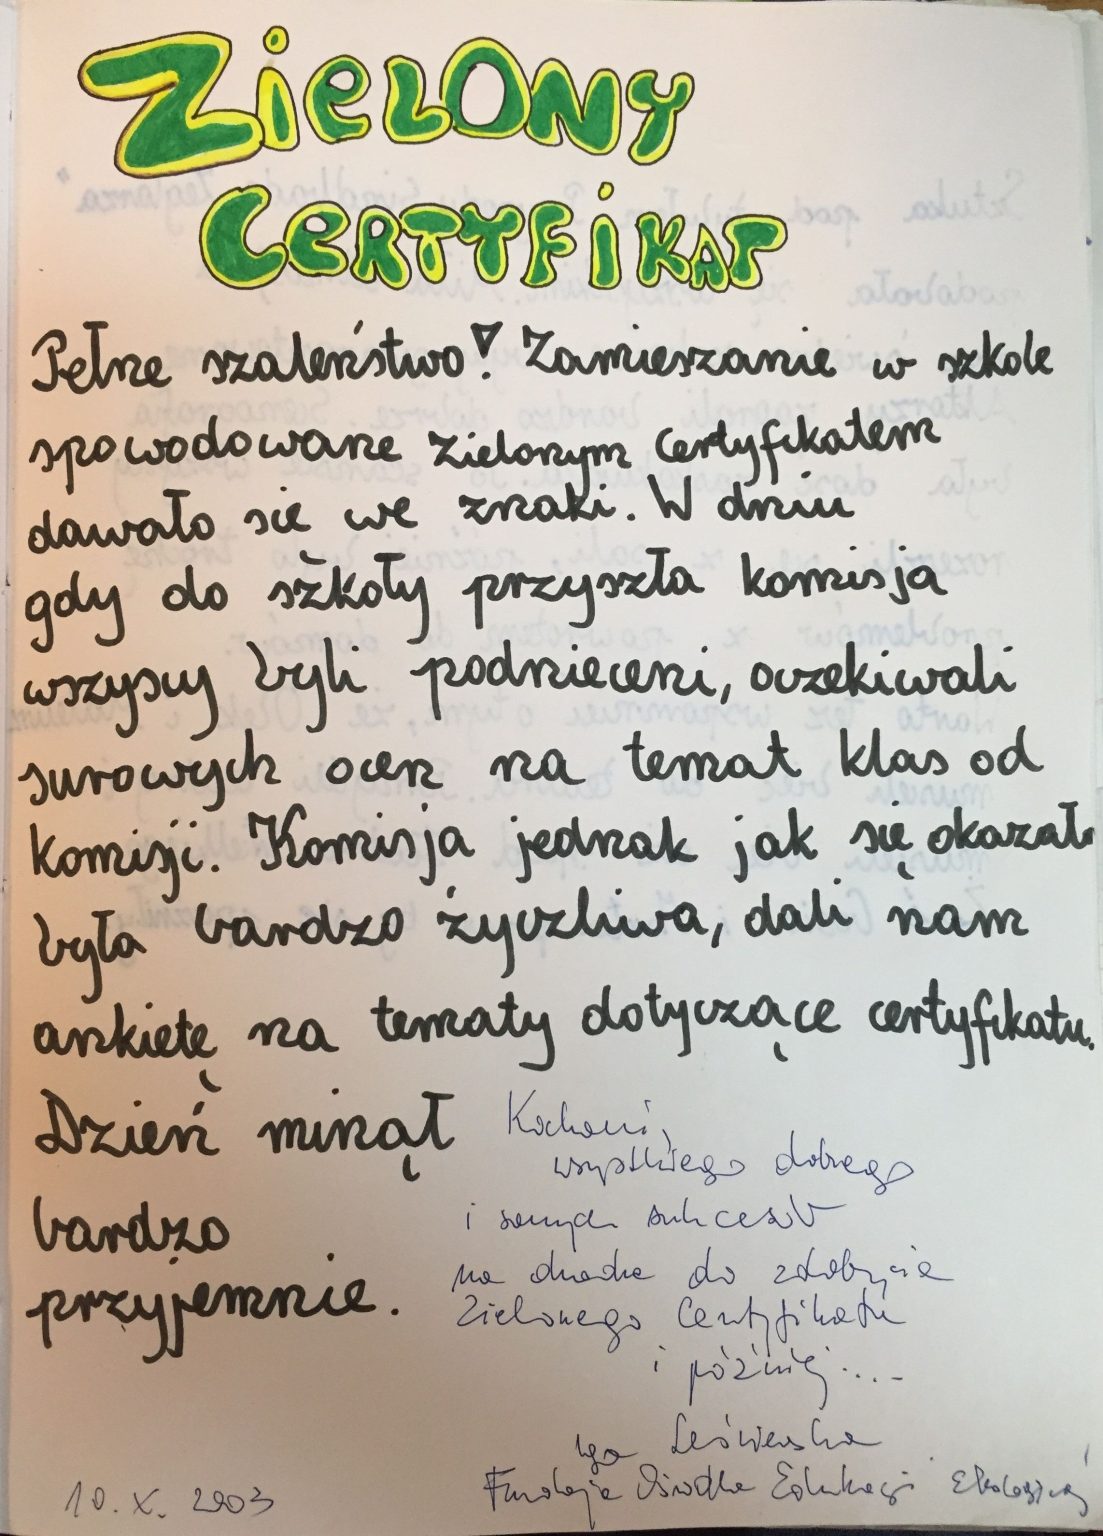 ZIELONY
CERTYFIKAT
Pełne szaleństwo! Zamieszanie w szkole
spowodowane Zielonym Certyfikatem
dawało sie we znaki. W dniu
gdy do szkoły przyszła komisja
wszyscy byli podnieceni, oczekiwali
surowych ocen na temat klas od
komisji. Komisja jednak jak się okazało
była bardzo życzliwa, dali nam
ankietę na tematy dotyczące certyfikatu.
Dzień minął
bardzo
przyjemnie.
Kochani,
wszystkiego dobrego
i samych sukcesów
na drodze do zdobycia
Zielonego Certyfikatu
i później....
Iga Leśniewska
Fundacja Ośrodka Edukacji Ekologicznej
10. X. 2003